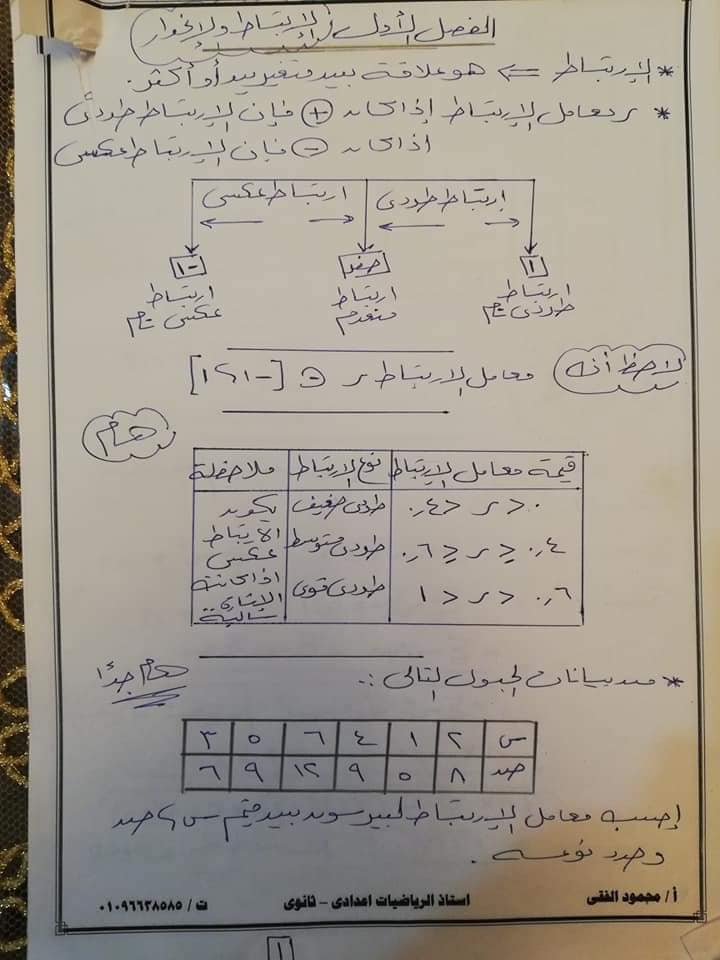 الفصل الأول : الارتباط والانحدار
* الارتباط ⇐ هو علاقة بين متغيرين أو أكثر.
* ر معامل الارتباط إذا كان + فإن الارتباط طردى
اذا كان - فإن الارتباط عكسى
ارتباط طردى ارتباط عكسى
١ صفر -١
ارتباط ارتباط ارتباط
طردى تام منعدم عكسى تام
لاحظ أنه معامل الارتباط ر ∈ [-١،١]
هام
قيمة معامل الارتباط نوع الارتباط ملاحظة
٠ < ر < ٠,٤ طردى ضعيف يكون
الارتباط
٠,٤ ≤ ر ≤ ٠,٦ طردى متوسط عكسى
اذا كانت
٠,٦ < ر < ١ طردى قوى الاشارة
سالبة
* من بيانات الجدول التالى :. هام جدًا
س ٢ ١ ٤ ٦ ٥ ٣
ص ٨ ٥ ٩ ١٢ ٩ ٦
إحسب معامل الارتباط لبيرسون بين قيم س ، ص
وحدد نوعه .
أ / محمود الفقى استاذ الرياضيات اعدادى - ثانوى ت / ٠١٠٩٦٦٣٨٥٨٥
١